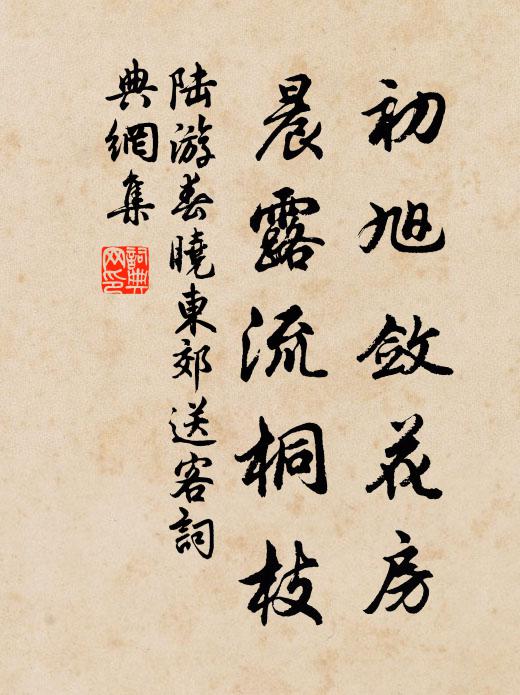 初旭斂花房
晨露流桐枝
陆游春曉東郊送客詞
典網集
詞典
网印